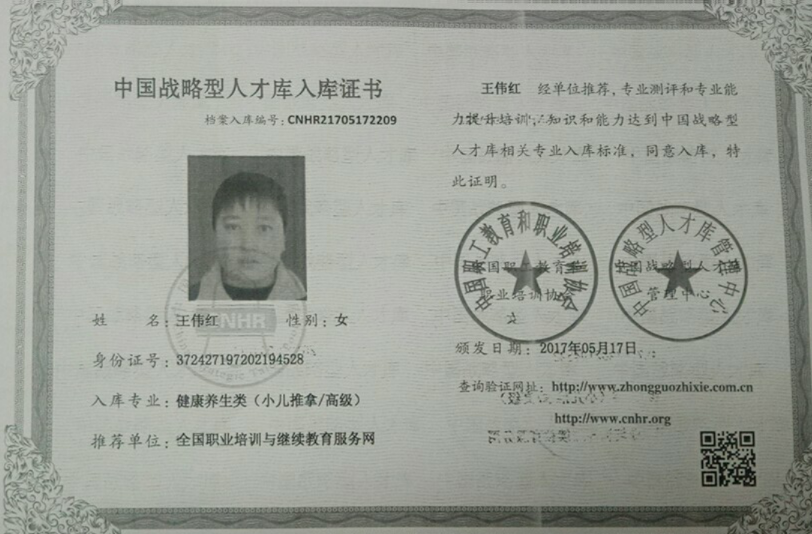 中国战略型人才库入库证书
档案入库编号：CNHR21705172209
CNHR
姓 名：王伟红 性别：女
身份证号：372427197202194528
入库专业：健康养生类（小儿推拿/高级）
推荐单位：全国职业培训与继续教育服务网
王伟红 经单位推荐，专业测评和专业能
力提升培训，知识和能力达到中国战略型
人才库相关专业入库标准，同意入库，特
此证明。
中国职工教育和职业培训协会
中国战略型人才库管理中心
职业培训协会
管理中心
颁发日期：2017年05月17日
查询验证网址：http://www.zhongguozhixie.com.cn
http://www.cnhr.org